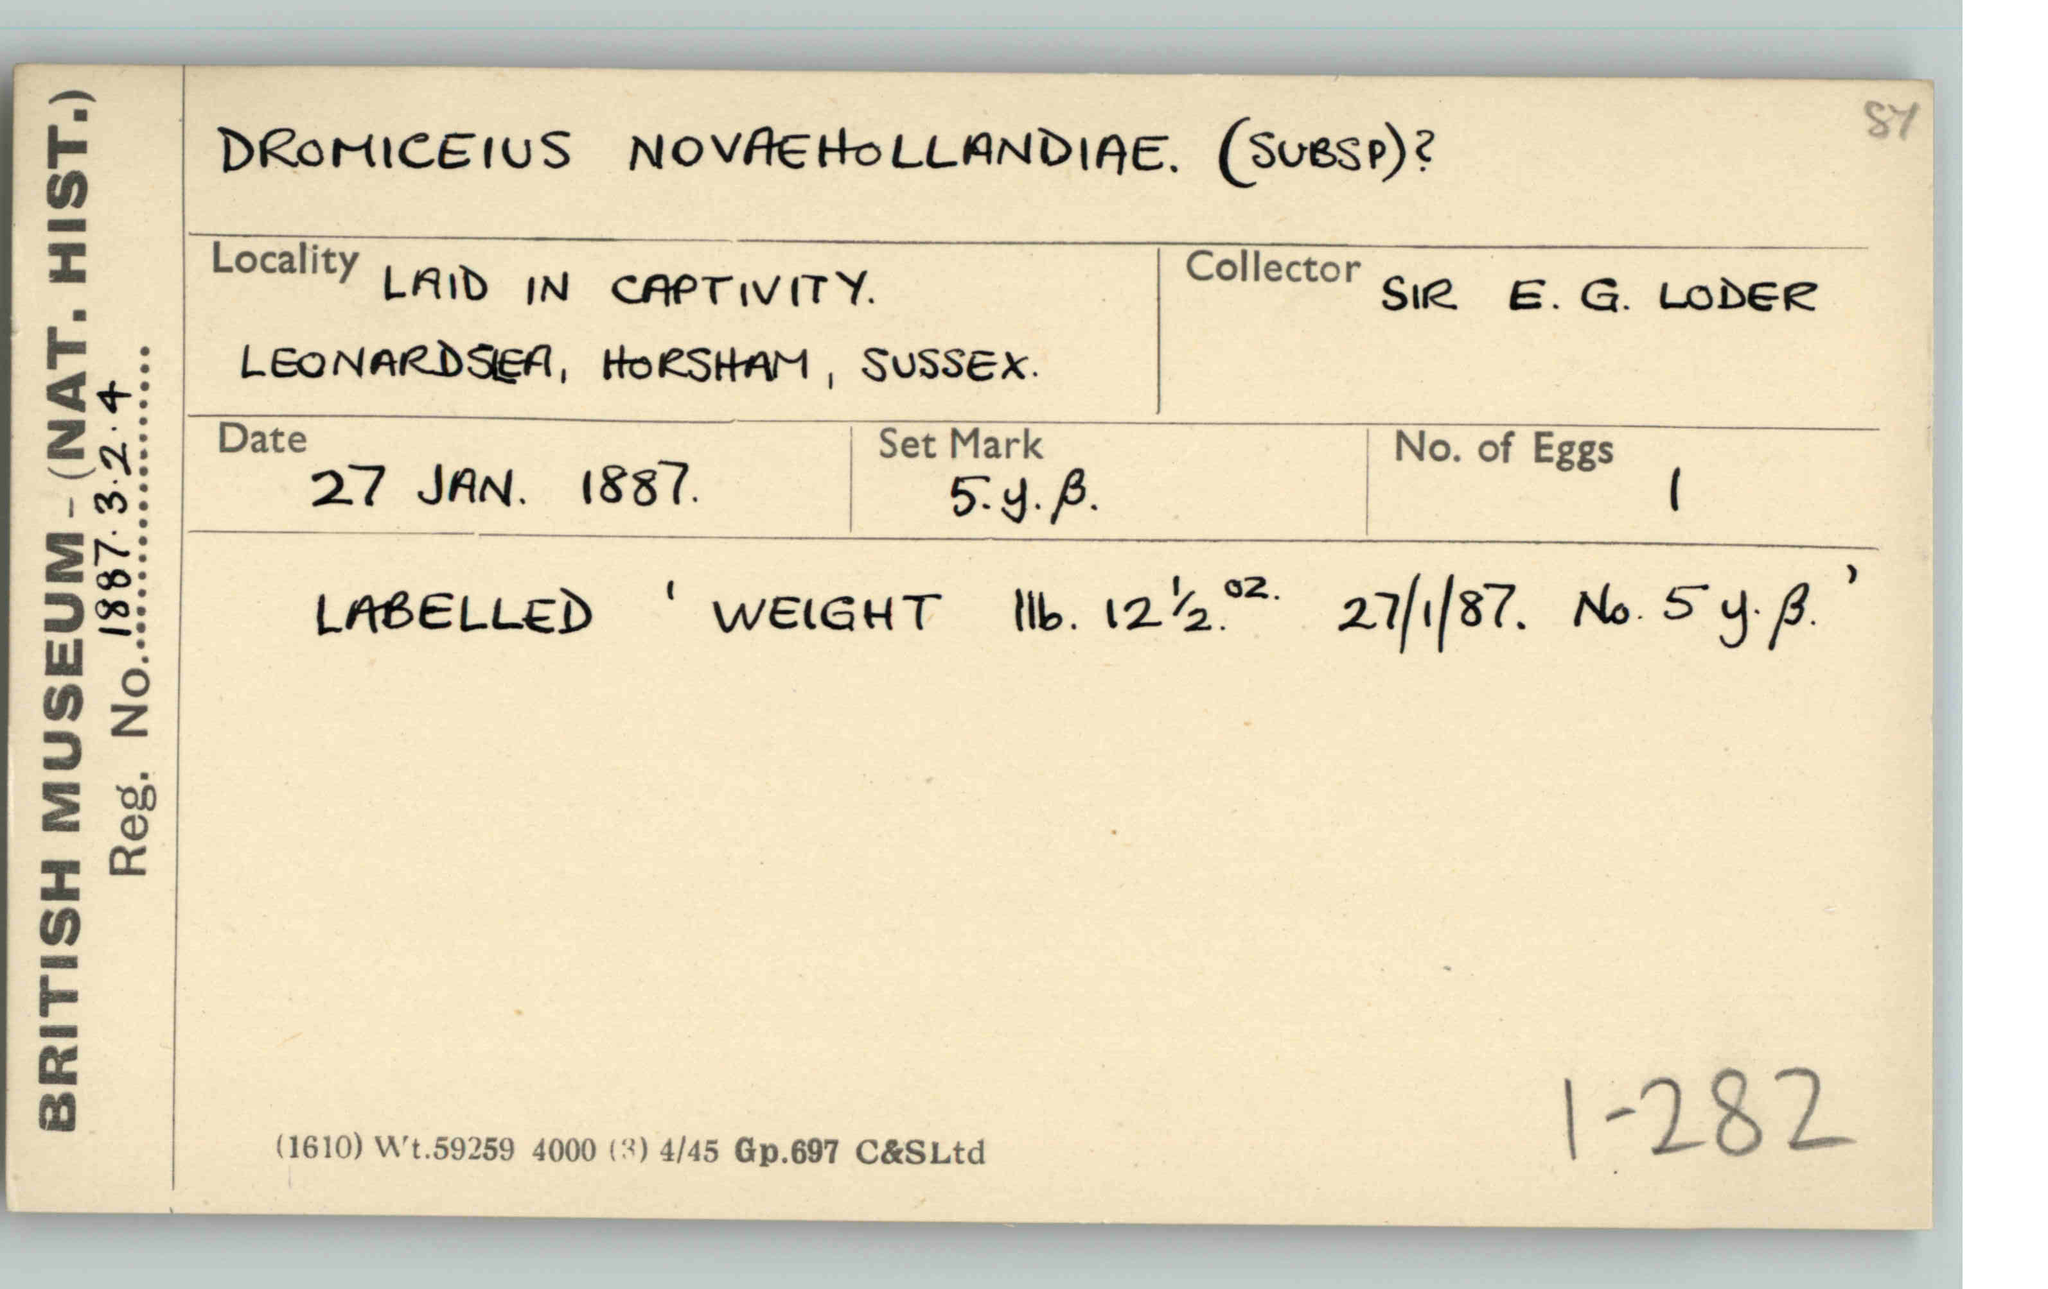 BRITISH MUSEUM-(NAT. HIST.)
Reg. No. 1887.3.2.4
DROMICEIUS NOVAEHOLLANDIAE. (SUBSP)?
Locality LAID IN CAPTIVITY.
LEONARDSLEA, HORSHAM, SUSSEX.
Collector SIR E. G. LODER
Date 27 JAN. 1887.
Set Mark 5.y.β.
No. of Eggs 1
LABELLED ' WEIGHT 1lb. 12 1/2. oz. 27/1/87. No. 5 y. β.'
(1610) Wt.59259 4000 (3) 4/45 Gp.697 C&SLtd
1-282